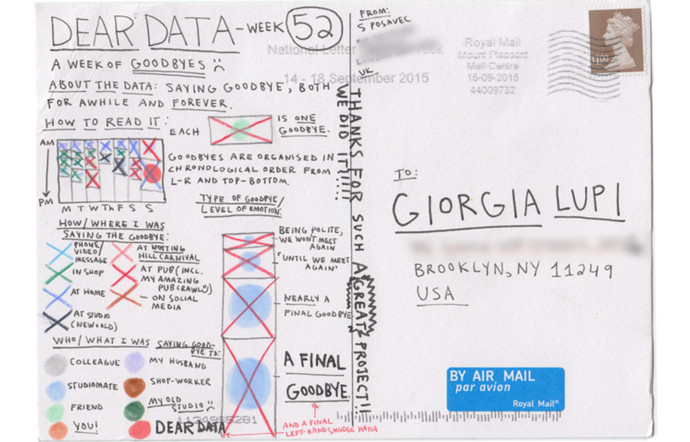 DEAR DATA - WEEK 52
A WEEK OF GOODBYES
ABOUT THE DATA: SAYING GOODBYE, BOTH
FOR AWHILE AND FOREVER.
HOW TO READ IT:
EACH IS ONE
GOODBYE.
AM
PM
M T W Th F S S
GOODBYES ARE ORGANISED IN
CHRONOLOGICAL ORDER FROM
L-R AND TOP-BOTTOM.
HOW/WHERE I WAS
SAYING THE GOODBYE:
PHONE/
VIDEO/
MESSAGE
IN SHOP
AT HOME
AT STUDIO
(NEW & OLD)
AT NOTTING
HILL CARNIVAL
AT PUB (INCL.
MY AMAZING
PUB CRAWL)
ON SOCIAL
MEDIA
TYPE OF GOODBYE/
LEVEL OF EMOTION:
BEING POLITE,
WE WON'T MEET
AGAIN
"UNTIL WE MEET
AGAIN"
NEARLY A
FINAL GOODBYE
A FINAL
GOODBYE
AND A FINAL
LEFT-HAND SMUDGE HAHA
WHO/WHAT I WAS SAYING GOOD-
BYE TO:
COLLEAGUE
STUDIOMATE
FRIEND
YOU!
MY HUSBAND
SHOP-WORKER
MY OLD
STUDIO
DEAR DATA
THANKS FOR SUCH A GREAT PROJECT!!
WE DID IT!!!!!
FROM:
S POSAVEC
UK
National Letter
14 - 18 September 2015
Royal Mail
Mount Pleasant
Mail Centre
15-09-2015
44009732
TO:
GIORGIA LUPI
BROOKLYN, NY 11249
USA
BY AIR MAIL
par avion
Royal Mail®